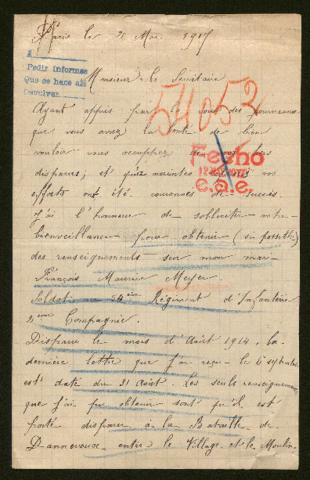 Paris le 20 Mai 1917
Pedir informes
Que se hace allí
Devolver
Monsieur le Secrétaire
54053
Ayant appris par la voix des journaux
que vous avez la bonté de bien
vouloir vous occuper de nos
disparus; et que maintes fois vos
efforts ont été couronnés de succès
j'ai l'honneur de solliciter votre
bienveillance pour obtenir (si possible)
des renseignements sur mon mari
Fecho
1917
e.a.e.
François Maurice Meyer
Soldat au Régiment d'Infanterie
Compagnie.
Disparu le mois d'Août 1914. la
dernière lettre que j'ai reçue le
est daté du 21 Août. Les seuls renseignements
que j'ai pu obtenir sont qu'il est
porté disparu à la Bataille de
Dannevoux entre le Village et le Moulin.